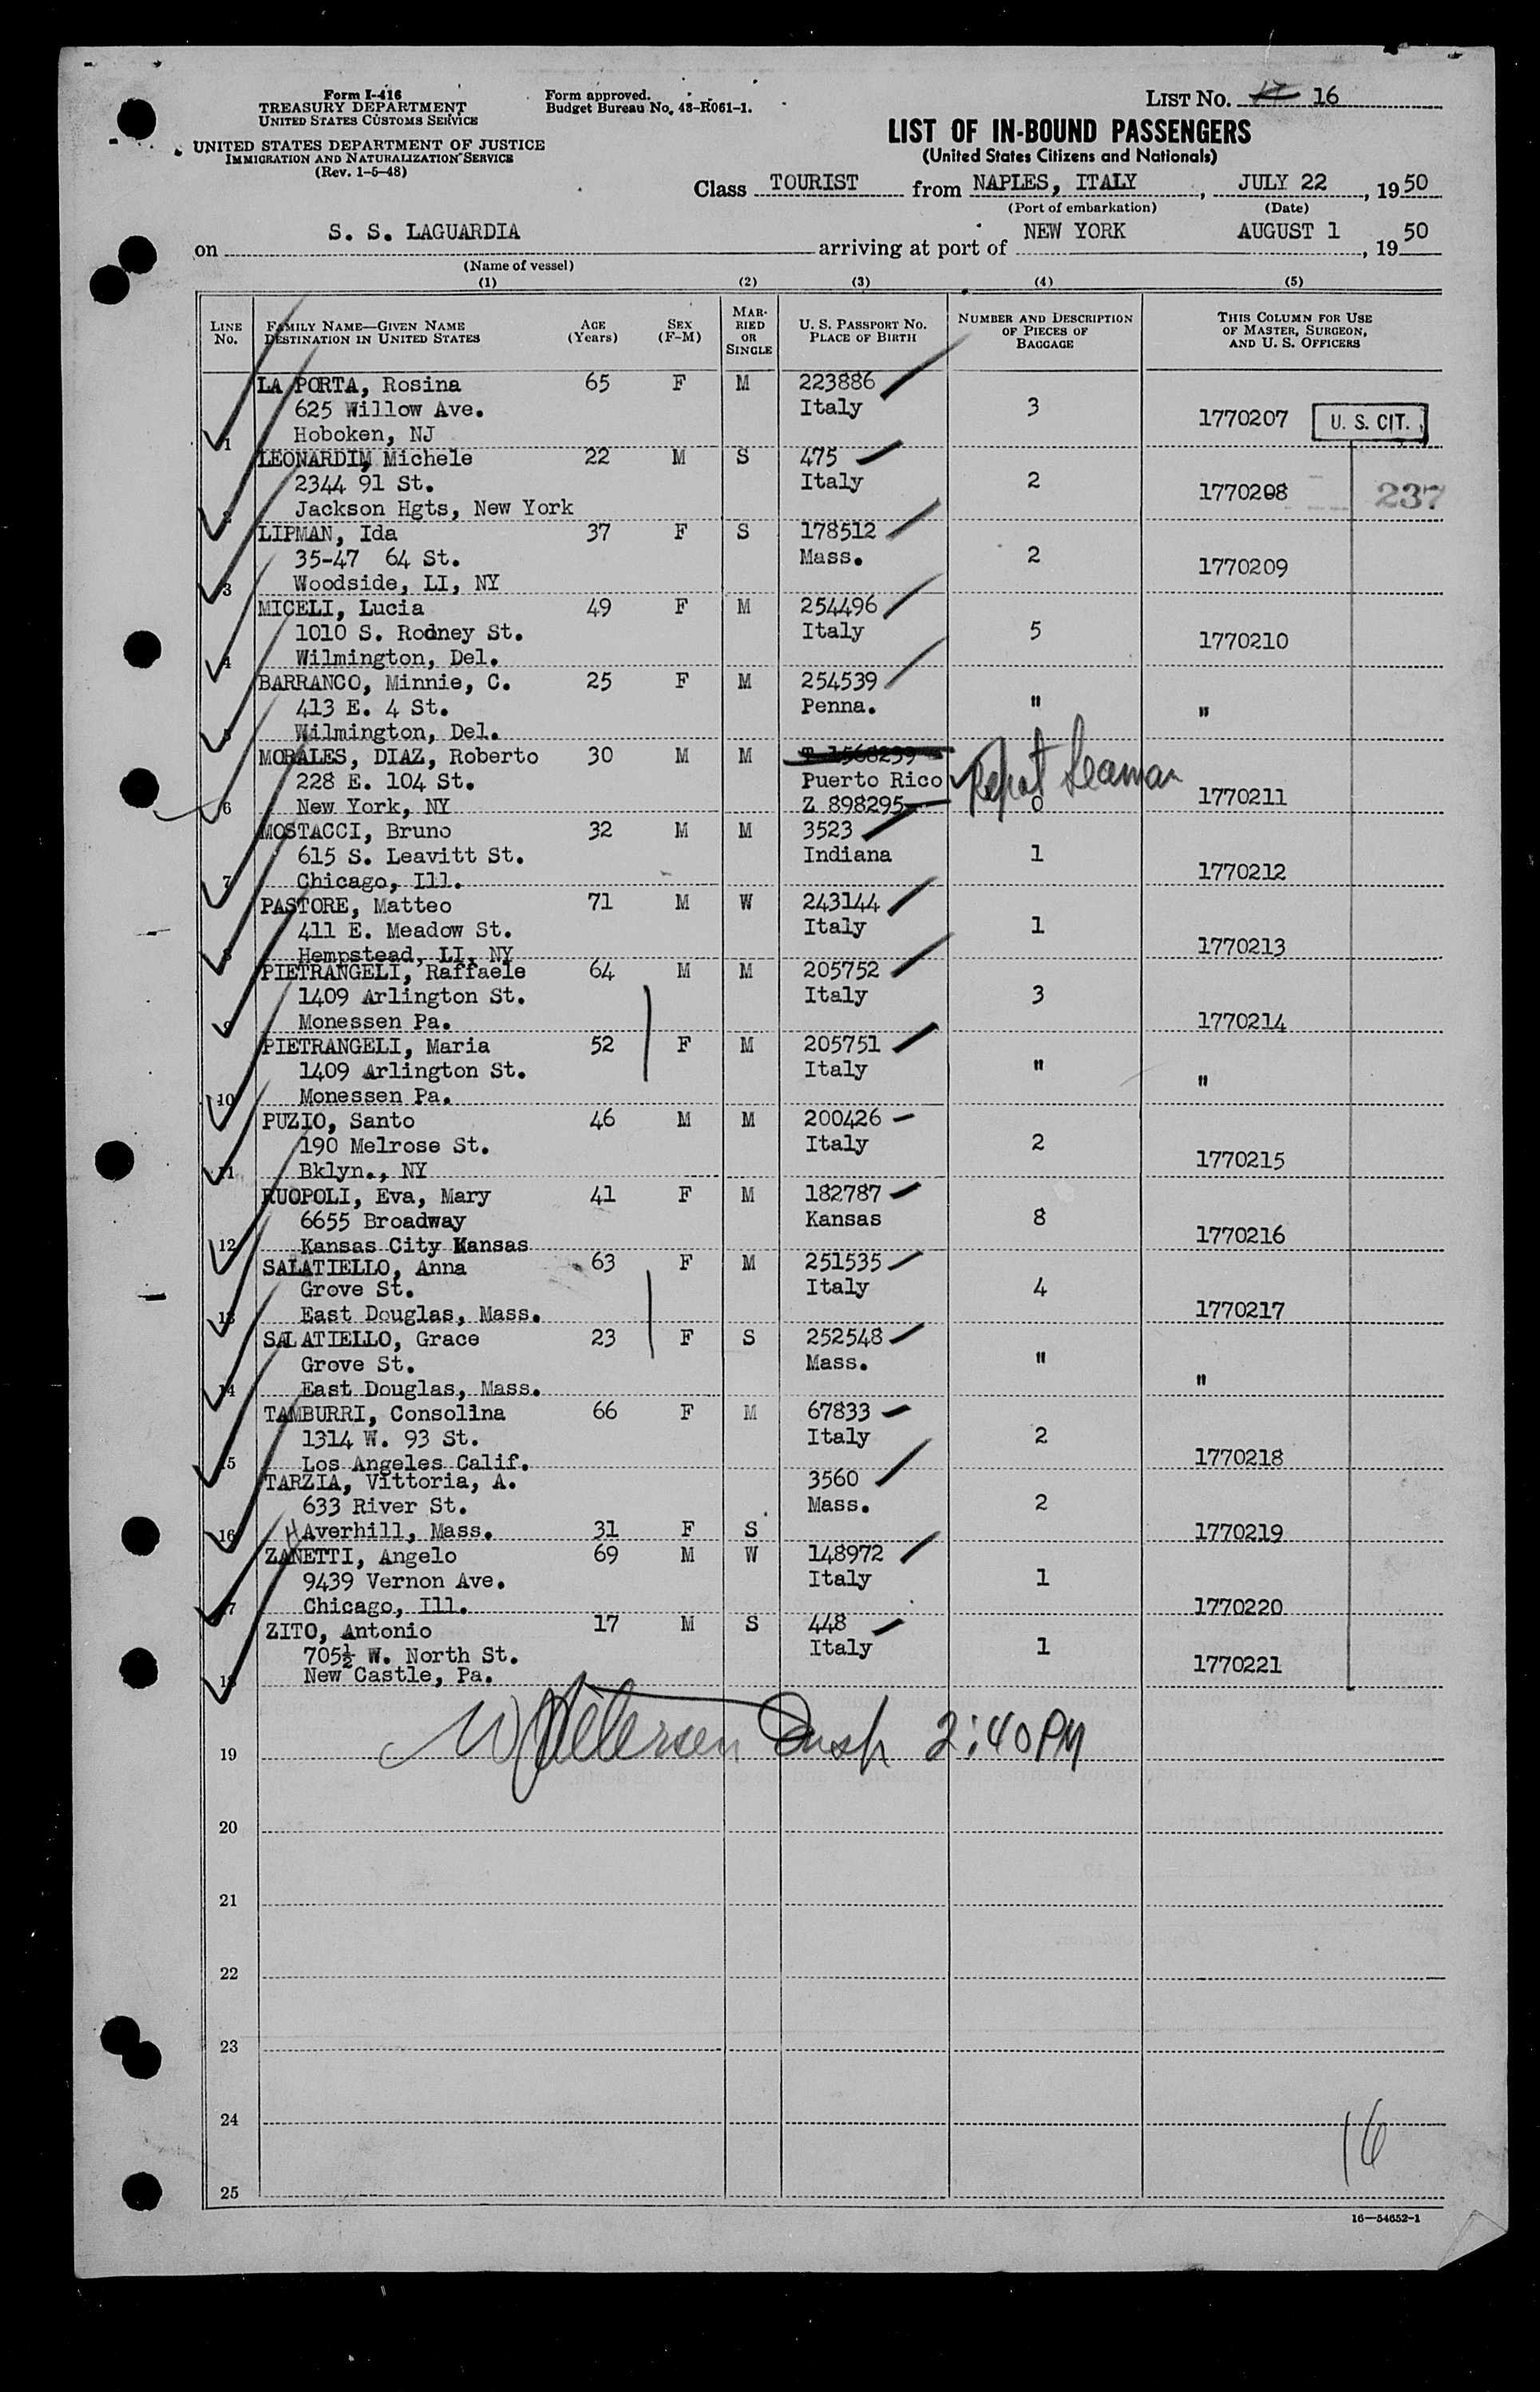 Form I-416
TREASURY DEPARTMENT
UNITED STATES CUSTOMS SERVICE
UNITED STATES DEPARTMENT OF JUSTICE
IMMIGRATION AND NATURALIZATION SERVICE
(Rev. 1-5-48)
Form approved.
Budget Bureau No. 43-R061-1.
LIST NO. 16
LIST OF IN-BOUND PASSENGERS
(United States Citizens and Nationals)
Class TOURIST from NAPLES, ITALY, JULY 22, 1950
(Port of embarkation) (Date)
on S. S. LAGUARDIA arriving at port of NEW YORK AUGUST 1, 1950
(Name of vessel)
(1) (2) (3) (4) (5)
LINE No. FAMILY NAME—GIVEN NAME DESTINATION IN UNITED STATES AGE (Years) SEX (F-M) MARRIED OR SINGLE U. S. PASSPORT NO. PLACE OF BIRTH NUMBER AND DESCRIPTION OF PIECES OF BAGGAGE THIS COLUMN FOR USE OF MASTER, SURGEON, AND U. S. OFFICERS
LA PORTA, Rosina 65 F M 223886
625 Willow Ave. Italy 3 1770207 U. S. CIT.
1 Hoboken, NJ
LEONARDI, Michele 22 M S 475
2344 91 St. Italy 2 1770208 237
2 Jackson Hgts, New York
LIPMAN, Ida 37 F S 178512
35-47 64 St. Mass. 2 1770209
3 Woodside, LI, NY
MICELI, Lucia 49 F M 254496
1010 S. Rodney St. Italy 5 1770210
4 Wilmington, Del.
BARRANCO, Minnie, C. 25 F M 254539
413 E. 4 St. Penna. " "
5 Wilmington, Del.
MORALES, DIAZ, Roberto 30 M M T 1568299
228 E. 104 St. Puerto Rico Repat Seaman
6 New York, NY Z 898295 0 1770211
MOSTACCI, Bruno 32 M M 3523
615 S. Leavitt St. Indiana 1 1770212
7 Chicago, Ill.
PASTORE, Matteo 71 M W 243144
411 E. Meadow St. Italy 1 1770213
8 Hempstead, LI, NY
PIETRANGELI, Raffaele 64 M M 205752
1409 Arlington St. Italy 3
9 Monessen Pa. 1770214
PIETRANGELI, Maria 52 F M 205751
1409 Arlington St. Italy " "
10 Monessen Pa.
PUZIO, Santo 46 M M 200426
190 Melrose St. Italy 2 1770215
11 Bklyn., NY
RUOPOLI, Eva, Mary 41 F M 182787
6655 Broadway Kansas 8 1770216
12 Kansas City Kansas
SALATIELLO, Anna 63 F M 251535
Grove St. Italy 4
13 East Douglas, Mass. 1770217
SALATIELLO, Grace 23 F S 252548
Grove St. Mass. " "
14 East Douglas, Mass.
TAMBURRI, Consolina 66 F M 67833
1314 W. 93 St. Italy 2
15 Los Angeles Calif. 1770218
TARZIA, Vittoria, A. 3560
633 River St. Mass. 2
16 HAverhill, Mass. 31 F S 1770219
ZANETTI, Angelo 69 M W 148972
9439 Vernon Ave. Italy 1
17 Chicago, Ill. 1770220
ZITO, Antonio 17 M S 448
705½ W. North St. Italy 1
18 New Castle, Pa. 1770221
19 Petersen Insp 2:40PM
20
21
22
23
24
16
25
16—54652-1